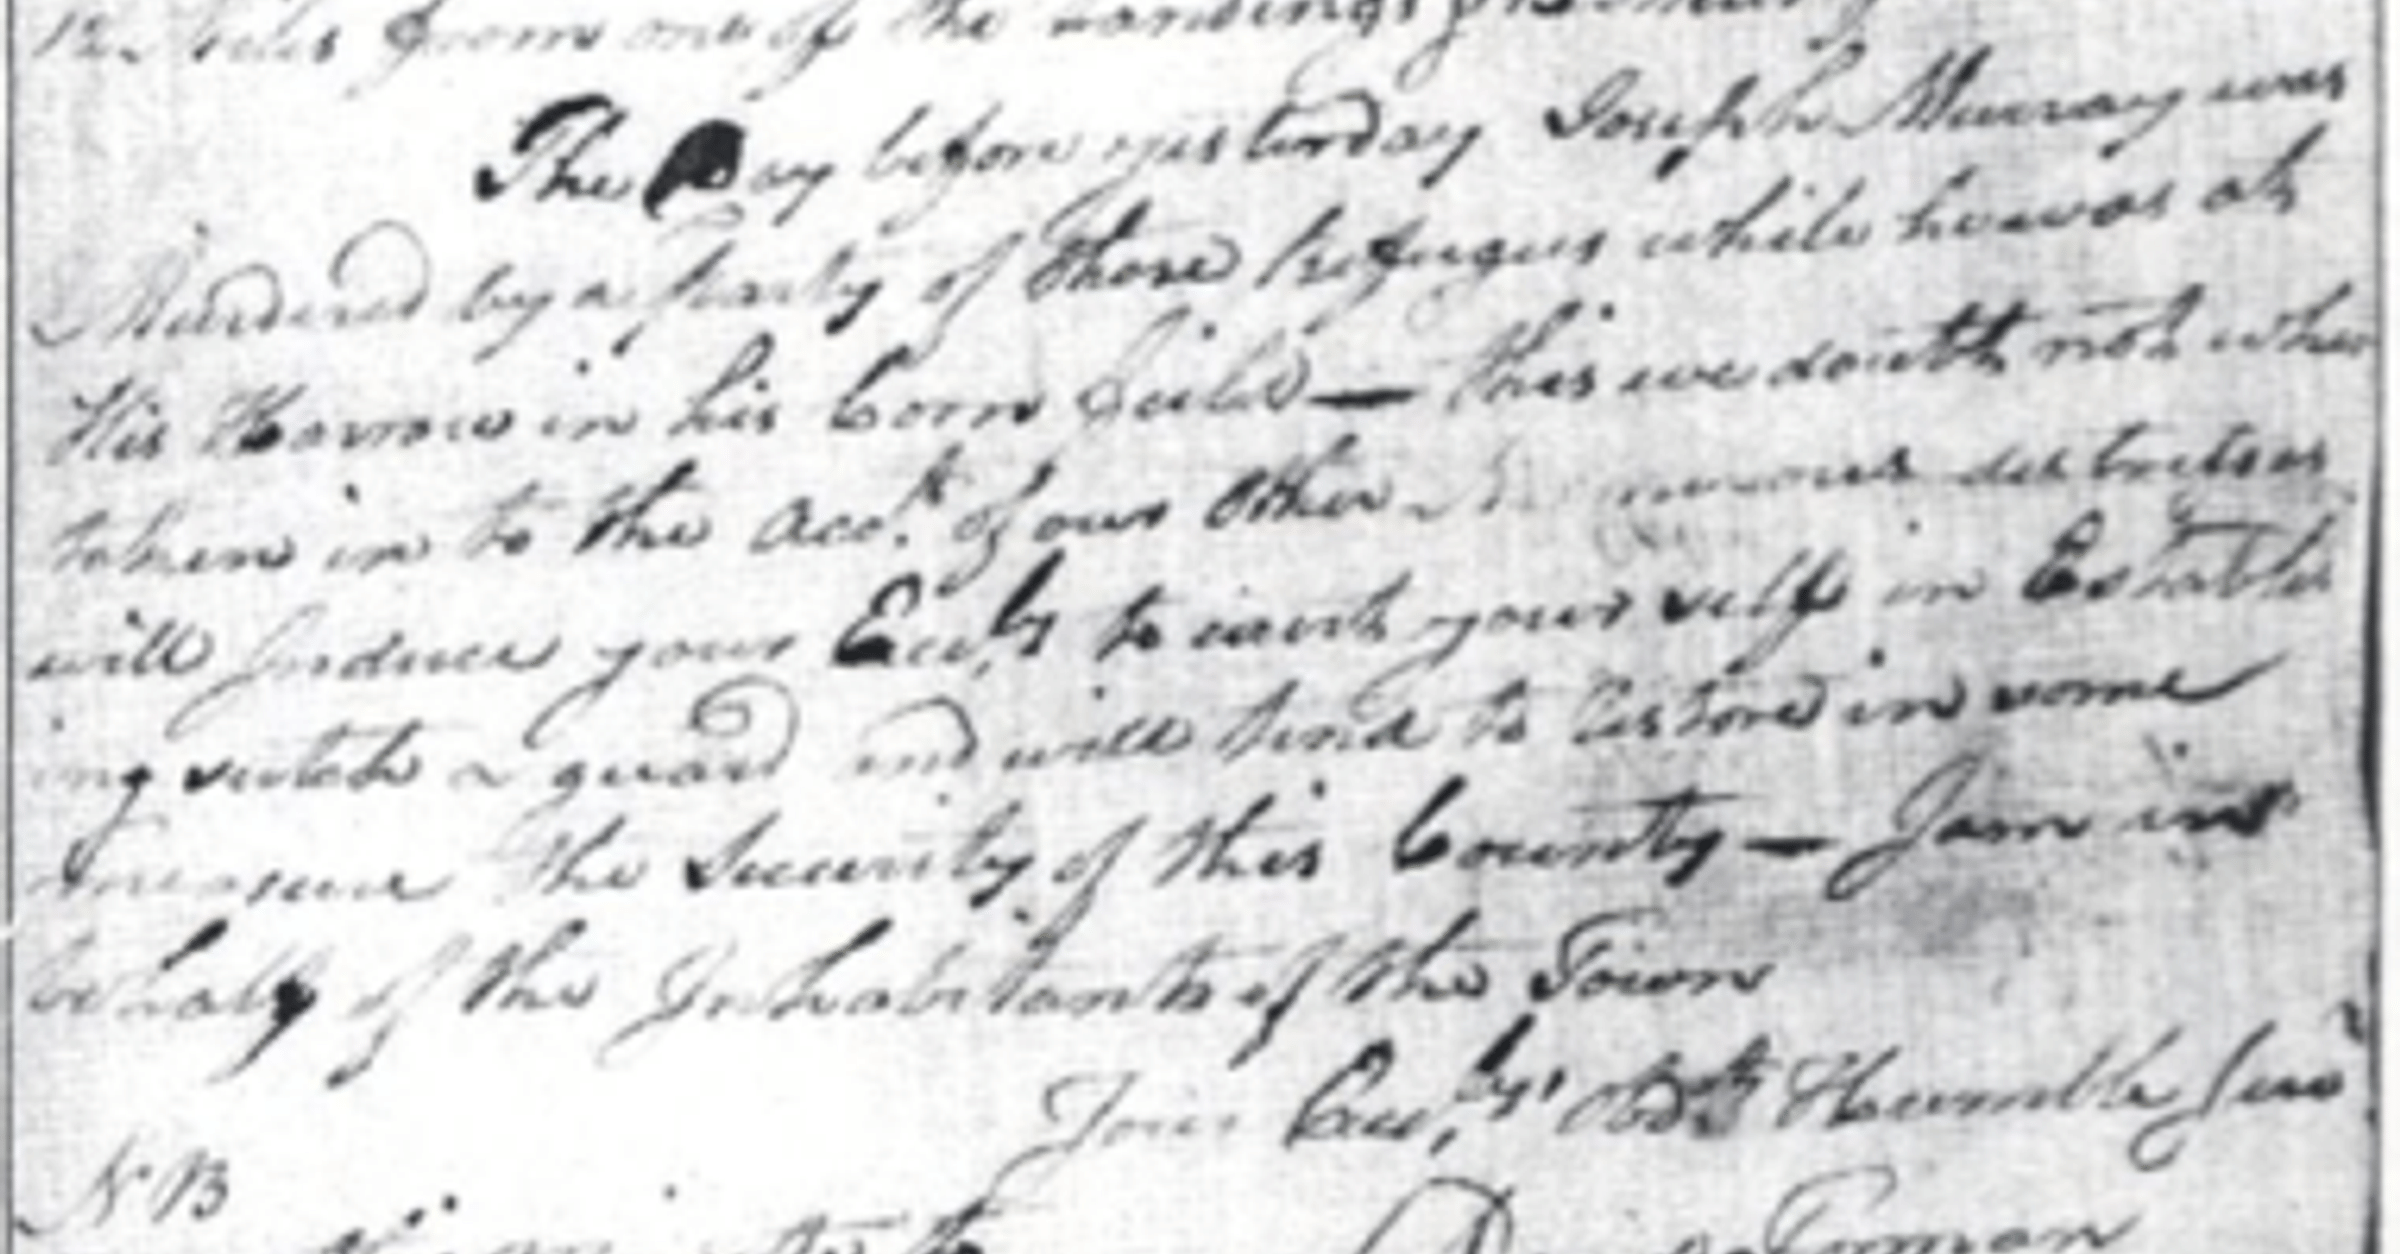 from one of the Landings
The Day before yesterday Joseph Murray was
Murdered by a party of those Refugees while he was at
His Harrow in his Corn field — this we doubt not when
taken in to the Acct. of our Other distresses
will Induce your Excly to exert your self in Establish
ing sutch a guard and will tend to Restore in some
measure the Security of this County — I am in
behalf of the Inhabitants of the Town
Your Excly's Obdt Humble Serv
N B
Forman